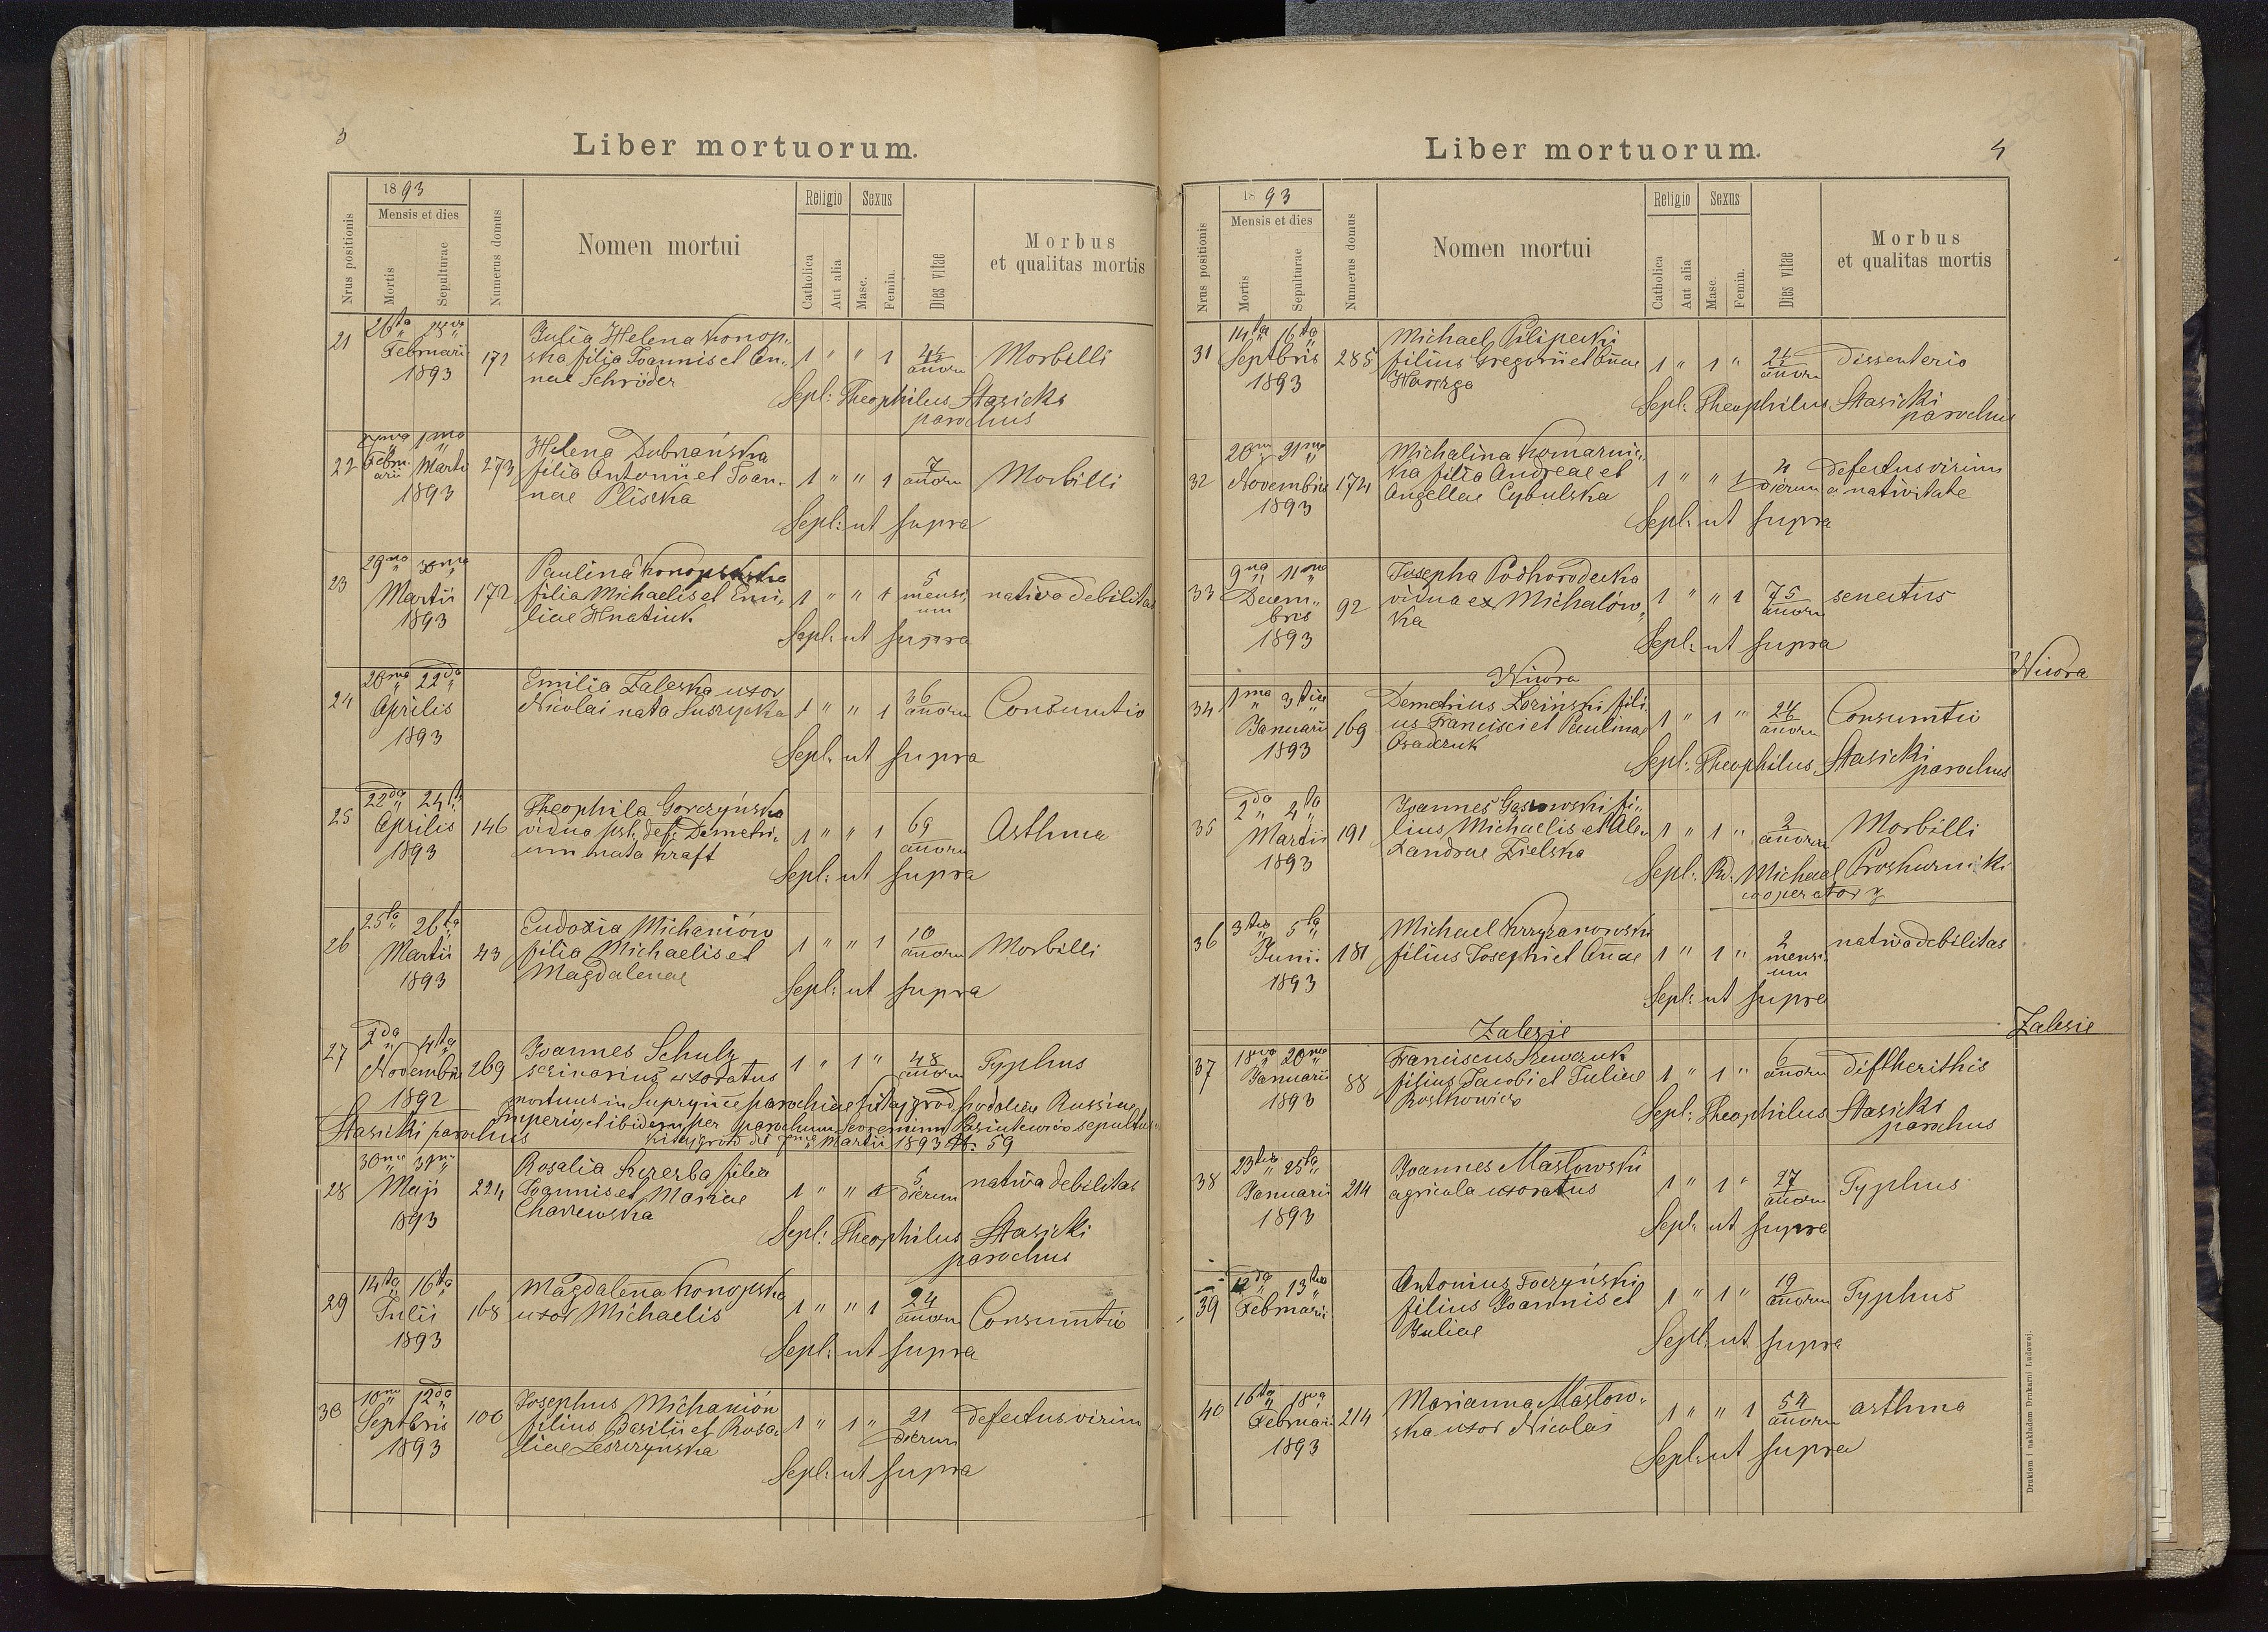 3
Liber mortuorum.
Nrus positionis
1893
Mensis et dies
Mortis
Sepulturae
Numerus domus
Nomen mortui
Religio
Catholica
Aut alia
Sexus
Masc.
Femin.
Dies vitae
Morbus
et qualitas mortis
21 26ta 28va Februarii 1893 171
Julia Helena Konop-
ska filia Joannis et An-
nae Schröder
1 " " 1 annorum Morbilli
Sepl: Theophilus Stasicki
parochus
22 1mo Februarii Marti 1893 273
Helena Dubrańska
filia Antonii et Joan-
nae Pliska
1 " " 1 7 annorum Morbilli
Sepl: ut supra
23 29na 30ma Martii 1893 172
Paulina Konopska
filia Michaelis et Emi-
liae Hnatiuk
1 " " 1 5 mensi-
um nativa debilitas
Sepl: ut supra
24 20ma 22da Aprilis 1893
Emilia Zaleska uxor
Nicolai nata Suszycka
1 " " 1 36 annorum Consumtio
Sepl: ut supra
25 22da 24ta Aprilis 1893 146
Theophila Gorczyńska
vidua pst: def: Demetri-
um nata Kraft
1 " " 1 69 annorum Asthma
Sepl: ut supra
26 25ta 26ta Martii 1893 43
Eudoxia Michaniów
filia Michaelis et
Magdalenae
1 " " 1 10 annorum Morbilli
Sepl: ut supra
27 2da 4ta Novembris 1892 269
Joannes Schulz
uxoratus
1 " 1 " 48 annorum Typhus
mortuus in parochiae Kitajgrod Podoliae Russiae
Imperio, et ibidem per parochum sepultus
Stasicki parochus
Kitajgrod Martii 1893 N. 59
28 30ma 31ma Maji 1893 224
Rosalia Szczerba filia
Joannis et Mariae
Charzewska
1 " " 1 5 dierum nativa debilitas
Sepl: Theophilus Stasicki
parochus
29 14ta 16ta Julii 1893 168
Magdalena Konopska
uxor Michaelis
1 " " 1 24 annorum Consumtio
Sepl: ut supra
30 10ma 12da Septbris 1893 106
Josephus Michaniów
filius Basilii et Rosa-
liae Leszczyńska
1 " 1 " 21 dierum defectus virium
Sepl: ut supra
4
Liber mortuorum.
Nrus positionis
1893
Mensis et dies
Mortis
Sepulturae
Numerus domus
Nomen mortui
Religio
Catholica
Aut alia
Sexus
Masc.
Femin.
Dies vitae
Morbus
et qualitas mortis
31 14ta 16ta Septbris 1893 285
Michael Pilipecki
filius Gregorii et Annae
1 " 1 " 21 annorum dissenterio
Sepl: Theophilus Stasicki
parochus
32 20ma 21ma Novembris 1893 174
Michalina Komarnic-
ka filia Andreae et
Angellae Cybulska
1 " " 1 4 dierum defectus virium
a nativitate
Sepl: ut supra
33 9na 11ma Decem-
bris 1893 92
Josepha Podhorodecka
vidua ex Michałów-
ka
1 " " 1 75 annorum senectus
Sepl: ut supra
Niwra Niwra
34 1ma 3tia Januarii 1893 169
Demetrius Loziński fili-
us Francisci et Paulinae
Osadczuk
1 " 1 " annorum Consumtio
Sepl: Theophilus Stasicki
parochus
35 2da 4ta Martii 1893 191
Joannes fi-
lius Michaelis et Ale-
xandrae Zielska
1 " 1 " 2 annorum Morbilli
Sepl: Rd: Michael Proskurnicki
cooperator
36 3tia 5ta Junii 1893 181
Michael Krzyżanowski
filius Josephi et Annae
1 " 1 " 2 mensi-
um nativa debilitas
Sepl: ut supra
Zalesie Zalesie
37 18va 20ma Januarii 1893 88
Franciscus Szewczuk
filius Jacobi et Juliae
Rostkowicz
1 " 1 " 6 annorum diftherithis
Sepl: Theophilus Stasicki
parochus
38 23tia 25ta Januarii 1893 214
Joannes Masłowski
agricola uxoratus
1 " 1 " 27 annorum Typhus
Sepl: ut supra
39 12da 13tia Februarii
Antonius Toczyński
filius Joannis et
Juliae
1 " 1 " 19 annorum Typhus
Sepl: ut supra
40 16ta 18va Februarii 1893 214
Marianna Masłow-
ska uxor Nicolai
1 " " 1 54 annorum asthma
Sepl: ut supra
Drukiem i nakładem Drukarni Ludowej.